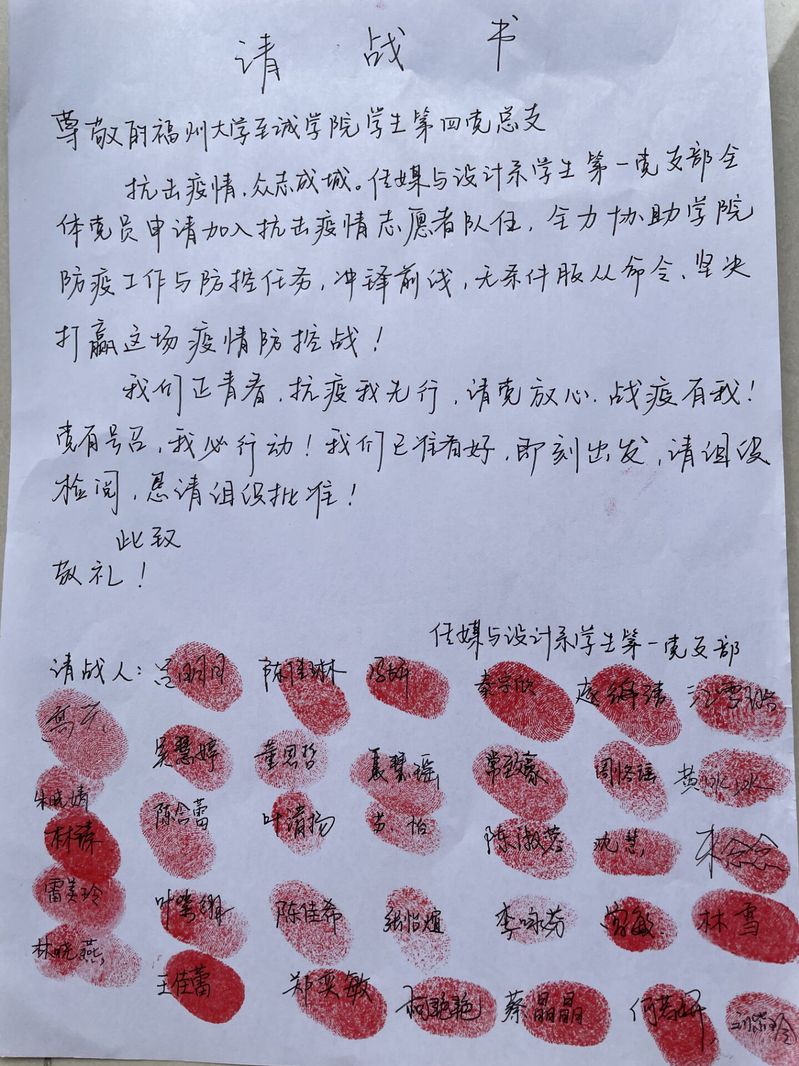 请战书
尊敬的福州大学至诚学院学生第四党总支
抗击疫情，众志成城。传媒与设计系学生第一党支部全
体党员申请加入抗击疫情志愿者队伍，全力协助学院
防疫工作与防控任务，冲锋前线，无条件服从命令、坚决
打赢这场疫情防控战！
我们正青春，抗疫我先行，请党放心，战疫有我！
党有号召，我必行动！我们已准备好，即刻出发，请组织
检阅，恳请组织批准！
此致
敬礼！
传媒与设计系学生第一党支部
请战人：陈佳琳 冯妍 秦宗欣
吴慧婷 董思哲 夏慧瑶 常致豪 周怡瑶 黄冰冰
陈含蕾 叶清扬 陈淑蓉 沈慧
林臻
雷美玲 陈佳希 张怡煊 李咏芬 林雪
林晓燕
王佳蕾 郑奕敏 艳艳 蔡晶晶